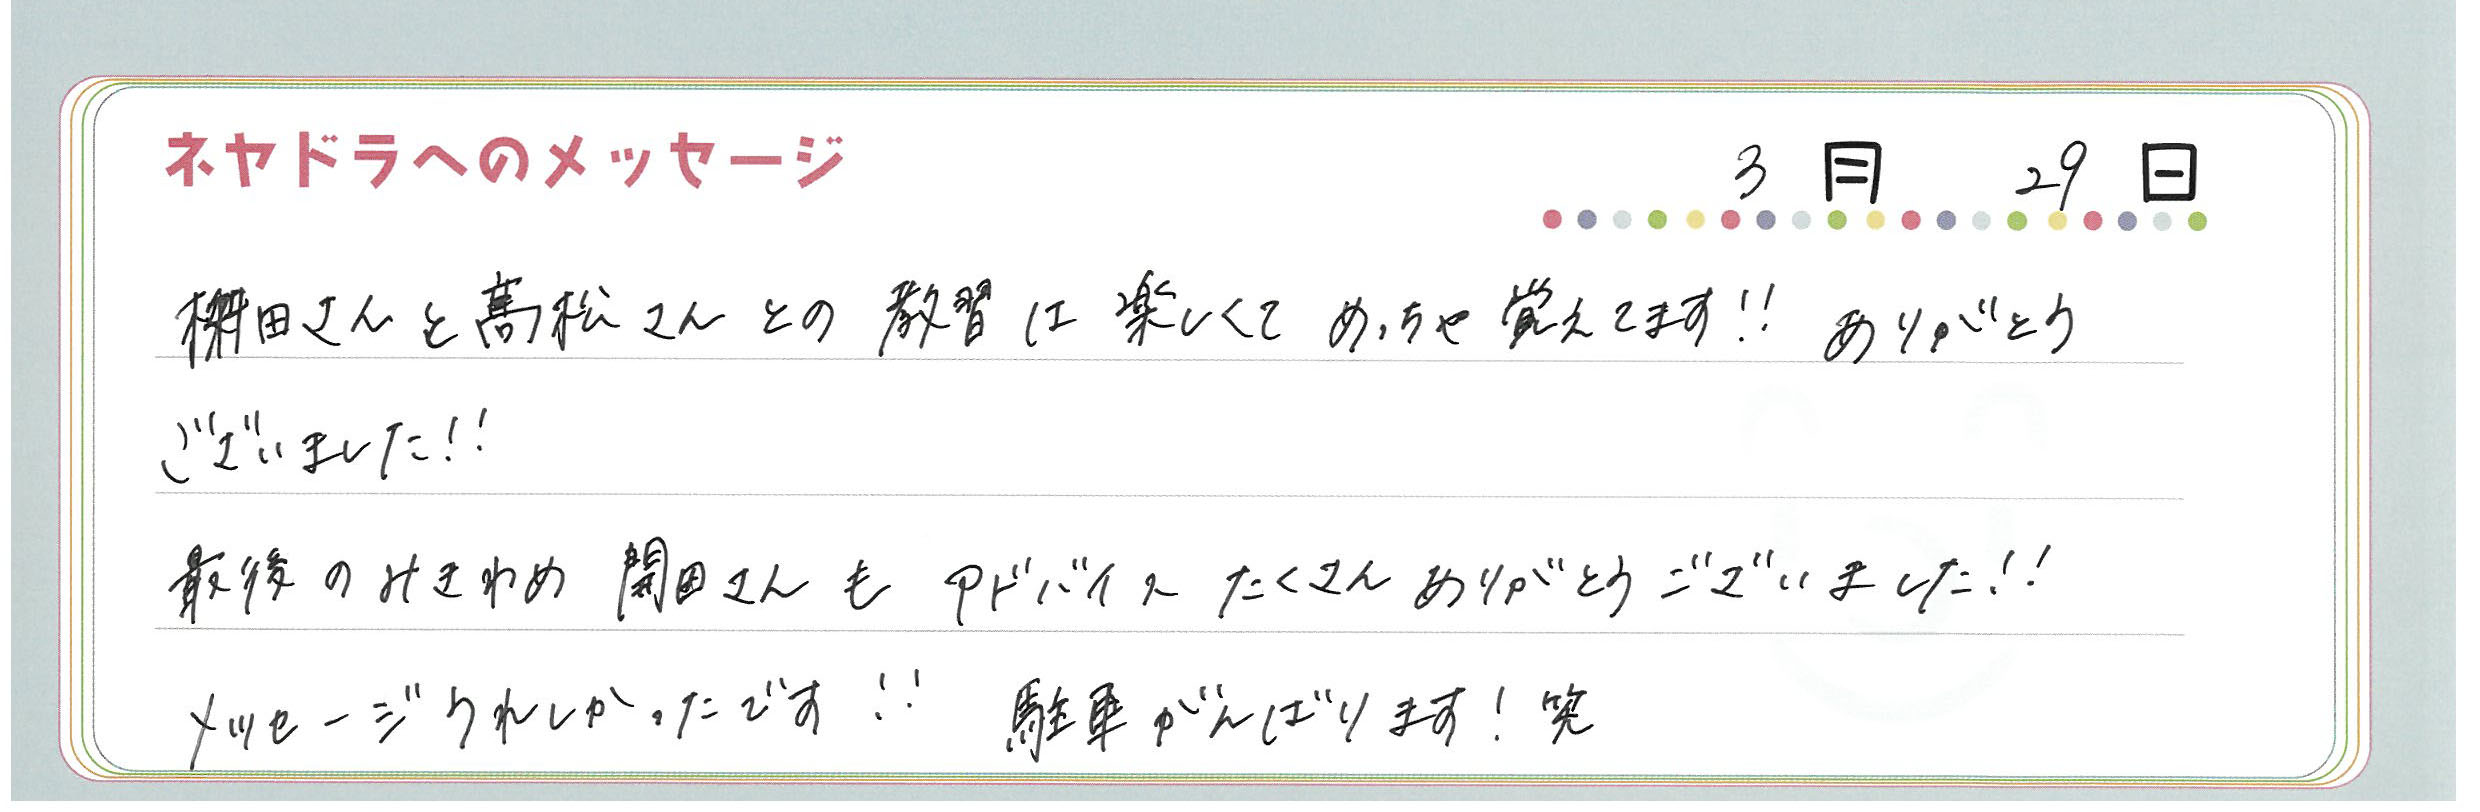 ネヤドラへのメッセージ
3月 29日
棚田さんと髙松さんとの教習は楽しくてめっちゃ覚えてます!! ありがとう
ございました!!
最後のみきわめ 関田さんも アドバイス たくさんありがとうございました!!
メッセージうれしかったです!! 駐車がんばります!笑